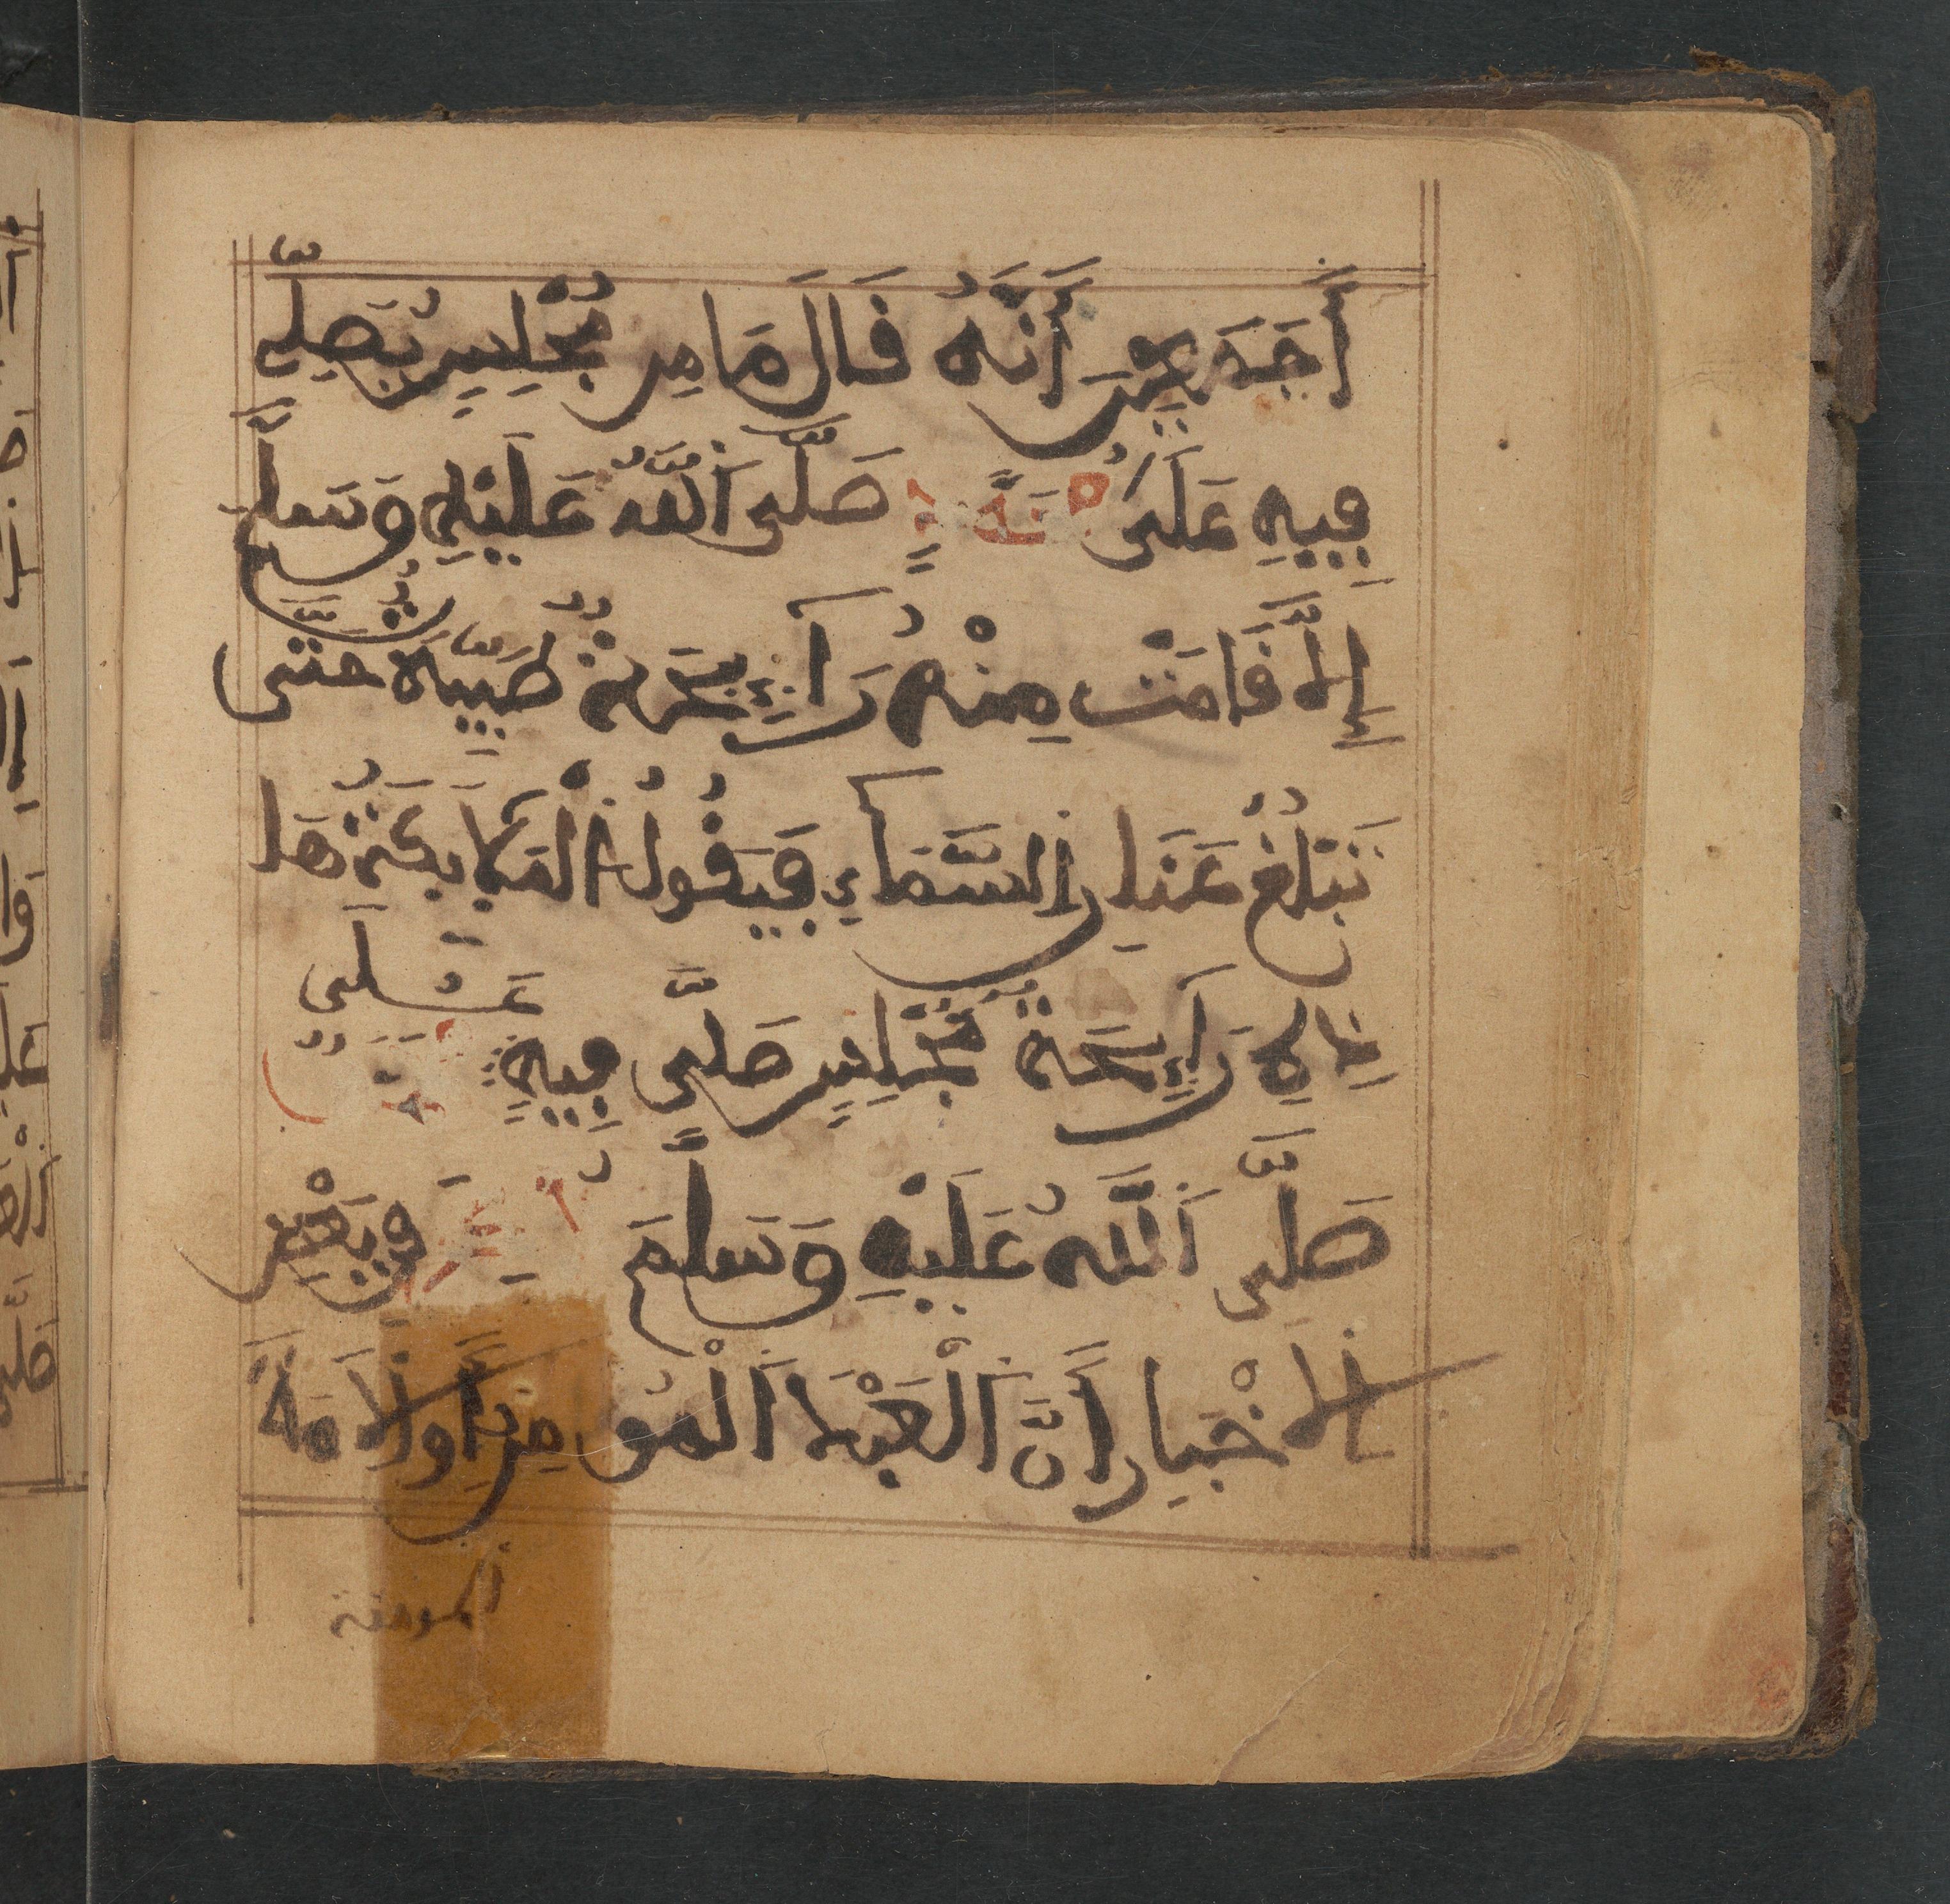 أَجْمَعِينَ أَنَّهُ قَالَ مَا مِن مَّجْلِسٍ يُصَلَّى
فِيهِ عَلَى صَلَّى اَللَّهُ عَلَيْهِ وَسَلَّمَ
إِلاَّ قَامَتْ مِنْهُ رَآئِحَةٌ طَيِّبَةٌ حَتَّى
تَبْلُغَ عَنَانَ اَلسَّمَآءِ فَيَقُولُ اَلْمَلَآئِكَةُ هَذَا
رَآئِحَةُ مَجْلِسٍ صَلَّى فِيهِ عَلَى
صَلَّى اَللَّهُ عَلَيْهِ وَسَلَّمَ وَفِي بَعْضِ
اَلاَخْبَارِ أَنَّ اَلْعَبْدَ اَلْمُومِنَ أَوِ اَلاَمَةَ
المومنة